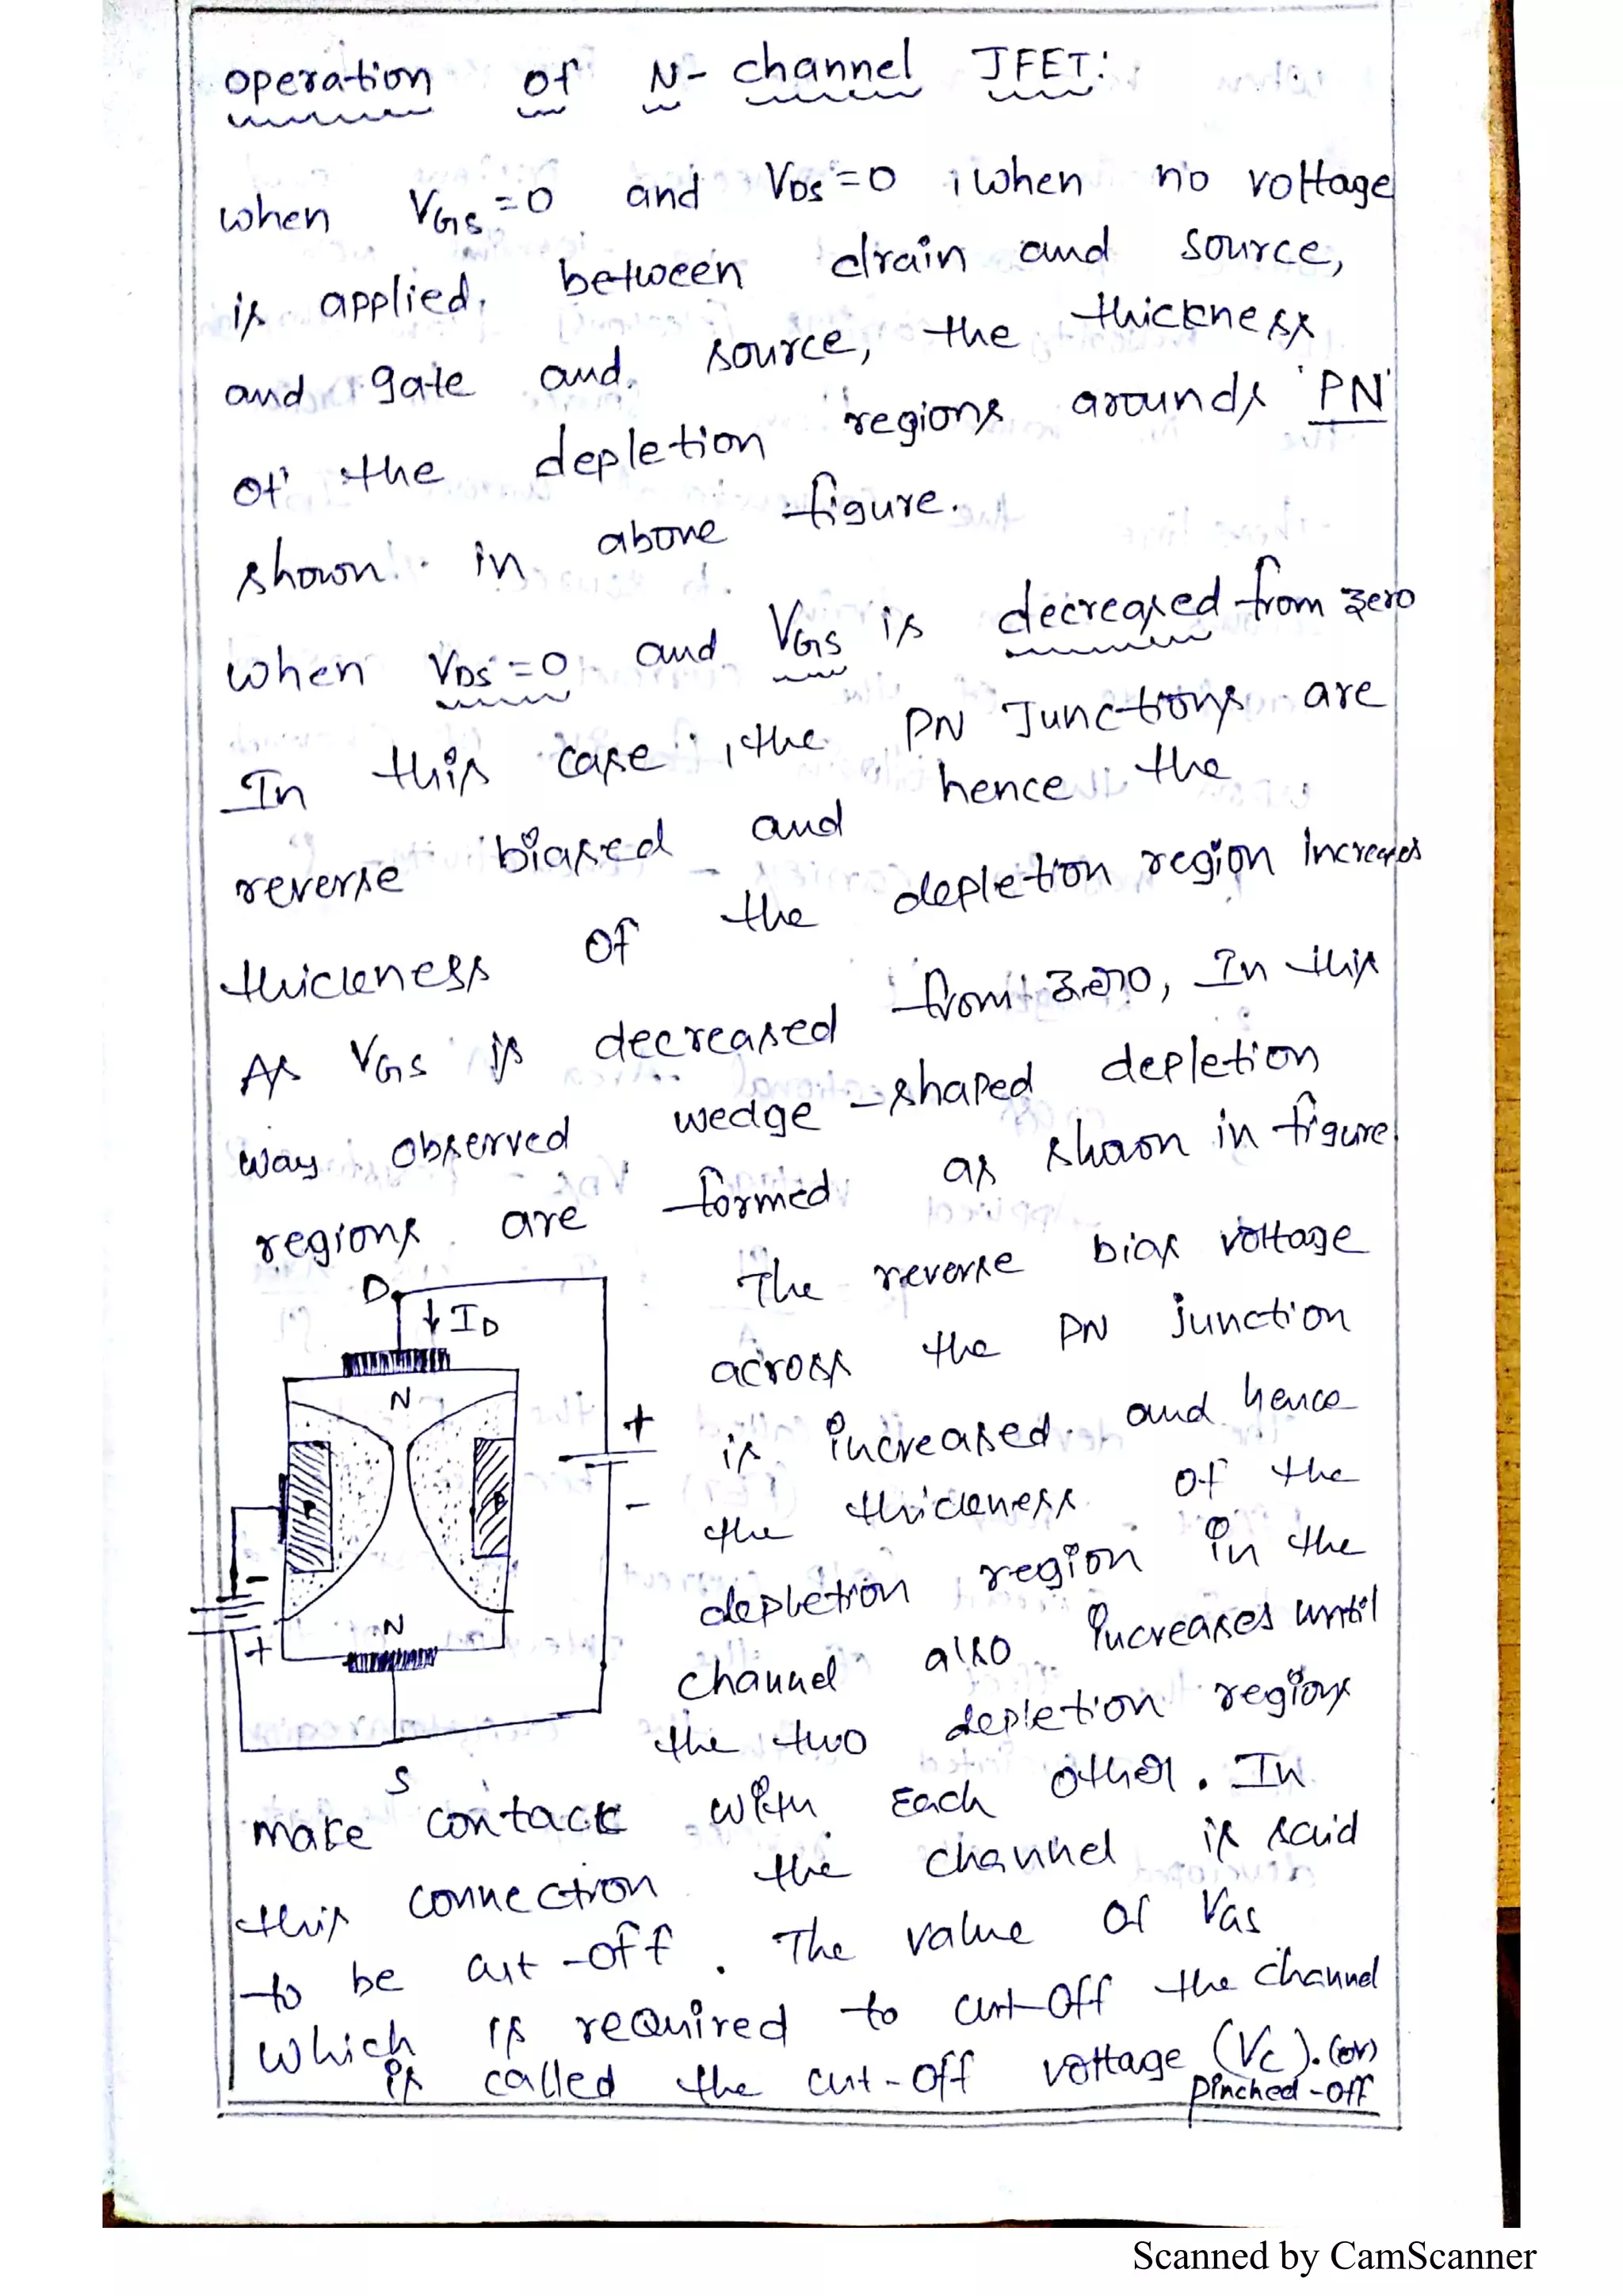 operation of N- channel JFET:
when VGS =0 and VDS =0 , when no voltage
is applied, between drain and source,
and gate and source, the thickness
of the depletion regions arounds 'PN'
shown in above figure.
when VDS =0 and VGS is decreased from zero
In this case , the PN Junctions are
reverse biased and hence the
thickness of the depletion region Increases
As VGS is decreased from zero, In this
way observed wedge -shaped depletion
regions are formed as shown in figure
The reverse bias voltage
across the PN junction
is increased and hence
the thickness of the
depletion region in the
channel also increases until
the two depletion regions
make contact with Each other. In
this connection the channel is said
to be cut -off. The value of VGS
which is required to cut-off the channel
is called the cut-off voltage (VC). (or)
pinched -off
D
ID
N
+
-
P
P
-
+
N
S
Scanned by CamScanner